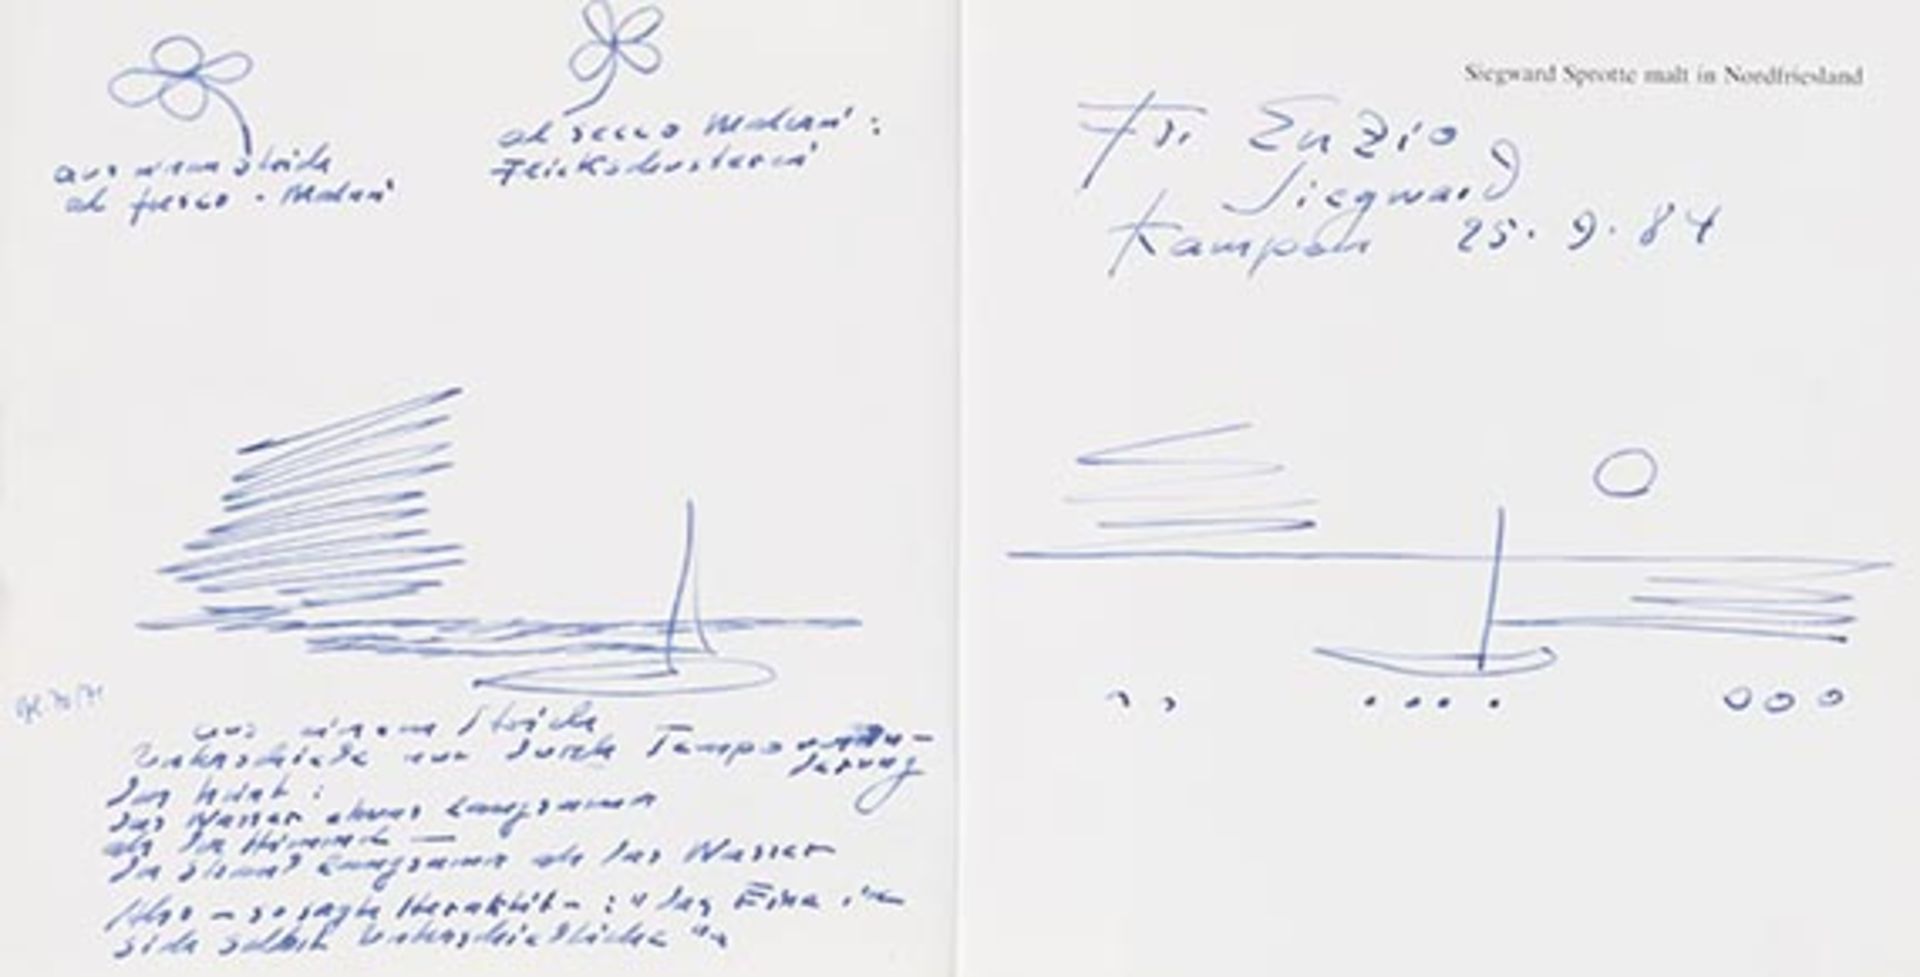 aus einem Strich
al fresco - Malerei
al secco Malerei :
Flickschusterei
Siegward Sprotte malt in Nordfriesland
Für Enzio
Siegward
Kampen 25. 9. 84
aus einem Strich
Unterschiede nur durch Tempo
das Wasser etwas langsamer
als der Himmel —
der Strand langsamer als das Wasser
Also - so sagte Heraklit - : " das Eine in
sich selbst Unterschiedliche "